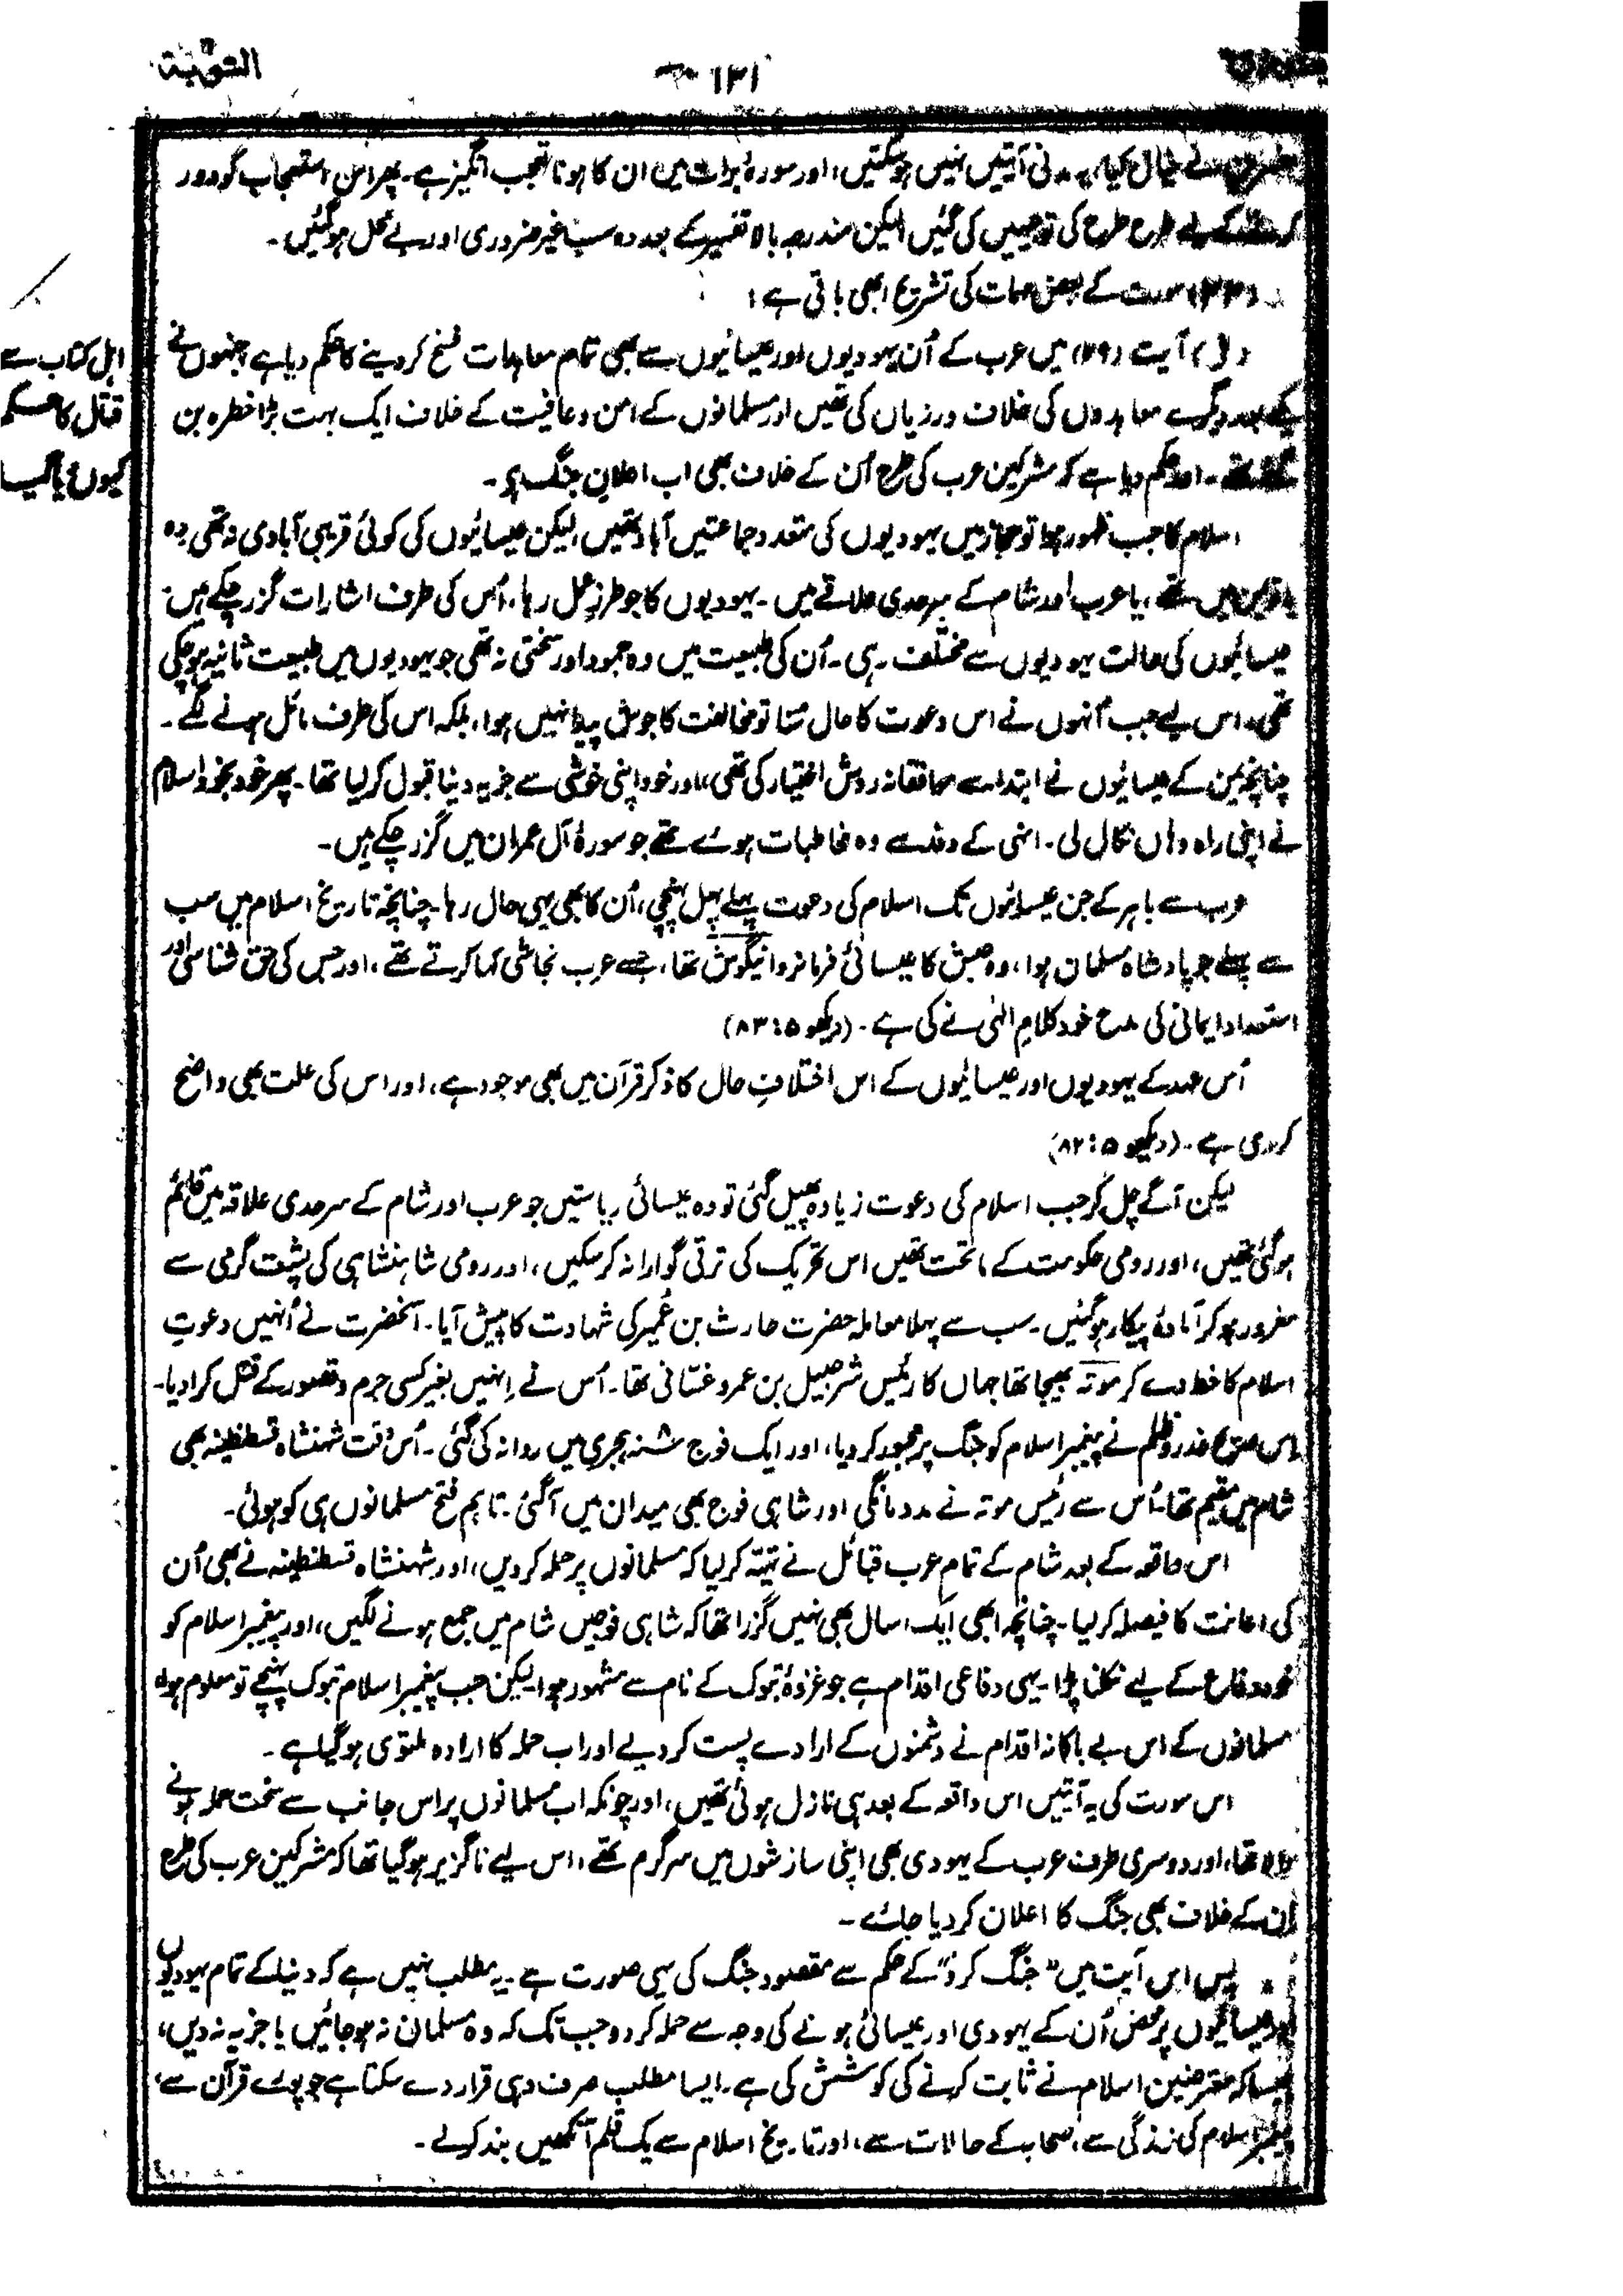 التوبة
۱۳۱
نے خیال کیا، یہ مدنی آیتیں نہیں ہوسکتیں، اور سورۂ براءت میں ان کا ہونا تعجب انگیز ہے۔ پھر اس استعجاب کو دور
کرنے کے لیے طرح طرح کی توجیہیں کی گئیں لیکن مندرجہ بالا تفسیر کے بعد وہ سب غیر ضروری اور بے محل ہوگئیں۔
(۲۳) سورت کے بعض مہمات کی تشریح ابھی باقی ہے:
(ا) آیت (۲۹) میں عرب کے اُن یہودیوں اور عیسائیوں سے بھی تمام معاہدات فسخ کر دینے کا حکم دیا ہے جنہوں نے
یکے بعد دیگرے معاہدوں کی خلاف ورزیاں کی تھیں اور مسلمانوں کے امن و عافیت کے خلاف ایک بہت بڑا خطرہ بن
گئے تھے۔ اور حکم دیا ہے کہ مشرکین عرب کی طرح اُن کے خلاف بھی اب اعلانِ جنگ ہے۔
اہل کتاب سے
قتال کا حکم
کیوں دیا گیا
اسلام کا جب ظہور ہوا تو حجاز میں یہودیوں کی متعدد جماعتیں آباد تھیں، لیکن عیسائیوں کی کوئی قریبی آبادی نہ تھی۔ وہ
یا تو یمن میں تھے، یا عرب اور شام کے سرحدی علاقے میں۔ یہودیوں کا جو طرزِ عمل رہا، اُس کی طرف اشارات گزر چکے ہیں۔
عیسائیوں کی حالت یہودیوں سے مختلف رہی۔ اُن کی طبیعت میں وہ جمود اور سختی نہ تھی جو یہودیوں میں طبیعت ثانیہ ہوچکی
تھی، اس لیے جب اُنہوں نے اس دعوت کا حال سنا تو مخالفت کا جوش پیدا نہیں ہوا، بلکہ اس کی طرف مائل ہونے لگے۔
چنانچہ یمن کے عیسائیوں نے ابتدا سے موافقانہ روش اختیار کی تھی، اور خود اپنی خوشی سے جزیہ دینا قبول کرلیا تھا۔ پھر خود بخود اسلام
نے اپنی راہ وہاں نکال لی۔ انہی کے وفد سے وہ مخاطبات ہوئے تھے جو سورۂ آل عمران میں گزر چکے ہیں۔
عرب سے باہر کے جن عیسائیوں تک اسلام کی دعوت پہلے پہل پہنچی، اُن کا بھی یہی حال رہا۔ چنانچہ تاریخ اسلام میں سب
سے پہلے جو پادشاہ مسلمان ہوا، وہ حبش کا عیسائی فرمانروا نیگوش تھا، جسے عرب نجاشی کہا کرتے تھے، اور جس کی حق شناسی اور
استعداد ایمانی کی مدح خود کلامِ الٰہی نے کی ہے۔ (دیکھو ۵: ۸۳)
اُس عہد کے یہودیوں اور عیسائیوں کے اس اختلافِ حال کا ذکر قرآن میں بھی موجود ہے، اور اس کی علت بھی واضح
کر دی ہے۔ (دیکھو ۵: ۸۲)
لیکن آگے چل کر جب اسلام کی دعوت زیادہ پھیل گئی تو وہ عیسائی ریاستیں جو عرب اور شام کے سرحدی علاقہ میں قائم
ہوگئی تھیں، اور رومی حکومت کے ماتحت تھیں اس تحریک کی ترقی گوارا نہ کر سکیں، اور رومی شاہنشاہی کی پشت گرمی سے
مغرور ہو کر آمادۂ پیکار ہوگئیں۔ سب سے پہلا معاملہ حضرت حارث بن عُمیر کی شہادت کا پیش آیا۔ آنحضرت نے اُنہیں دعوتِ
اسلام کا خط دے کر موتہ بھیجا تھا جہاں کا رئیس شرحبیل بن عمرو غسّانی تھا۔ اُس نے اِنہیں بغیر کسی جرم و قصور کے قتل کرا دیا۔
اس صریح غدر و ظلم نے پیغمبر اسلام کو جنگ پر مجبور کر دیا، اور ایک فوج ۸ سنہ ہجری میں روانہ کی گئی۔ اُس وقت شہنشاہ قسطنطینہ بھی
شام میں مقیم تھا۔ اُس سے رئیس موتہ نے مدد مانگی اور شاہی فوج بھی میدان میں آگئی۔ تاہم فتح مسلمانوں ہی کو ہوئی۔
اس واقعہ کے بعد شام کے تمام عرب قبائل نے تہیّہ کر لیا کہ مسلمانوں پر حملہ کر دیں، اور شہنشاہ قسطنطینہ نے بھی اُن
کی اعانت کا فیصلہ کر لیا۔ چنانچہ ابھی ایک سال بھی نہیں گزرا تھا کہ شاہی فوجیں شام میں جمع ہونے لگیں، اور پیغمبر اسلام کو
خود دفاع کے لیے نکلنا پڑا۔ یہی دفاعی اقدام ہے جو غزوۂ تبوک کے نام سے مشہور ہوا۔ لیکن جب پیغمبر اسلام تبوک پہنچے تو معلوم ہوا،
مسلمانوں کے اس بے باکانہ اقدام نے دشمنوں کے ارادے پست کر دیے اور اب حملہ کا ارادہ ملتوی ہوگیا ہے۔
اس سورت کی یہ آیتیں اس واقعہ کے بعد ہی نازل ہوئی تھیں، اور چونکہ اب مسلمانوں پر اس جانب سے سخت حملہ ہونے
والا تھا، اور دوسری طرف عرب کے یہودی بھی اپنی سازشوں میں سرگرم تھے، اس لیے ناگزیر ہوگیا تھا کہ مشرکین عرب کی طرح
اِن کے خلاف بھی جنگ کا اعلان کر دیا جائے۔
پس اس آیت میں "جنگ کرو" کے حکم سے مقصود جنگ کی یہی صورت ہے۔ یہ مطلب نہیں ہے کہ دنیا کے تمام یہودیوں
اور عیسائیوں پر محض اُن کے یہودی اور عیسائی ہونے کی وجہ سے حملہ کر دو جب تک کہ وہ مسلمان نہ ہوجائیں یا جزیہ نہ دیں،
جیسا کہ معترضین اسلام نے ثابت کرنے کی کوشش کی ہے۔ ایسا مطلب صرف وہی قرار دے سکتا ہے جو پورے قرآن سے،
پیغمبر اسلام کی زندگی سے، صحابہ کے حالات سے، اور تاریخ اسلام سے یک قلم آنکھیں بند کر لے۔